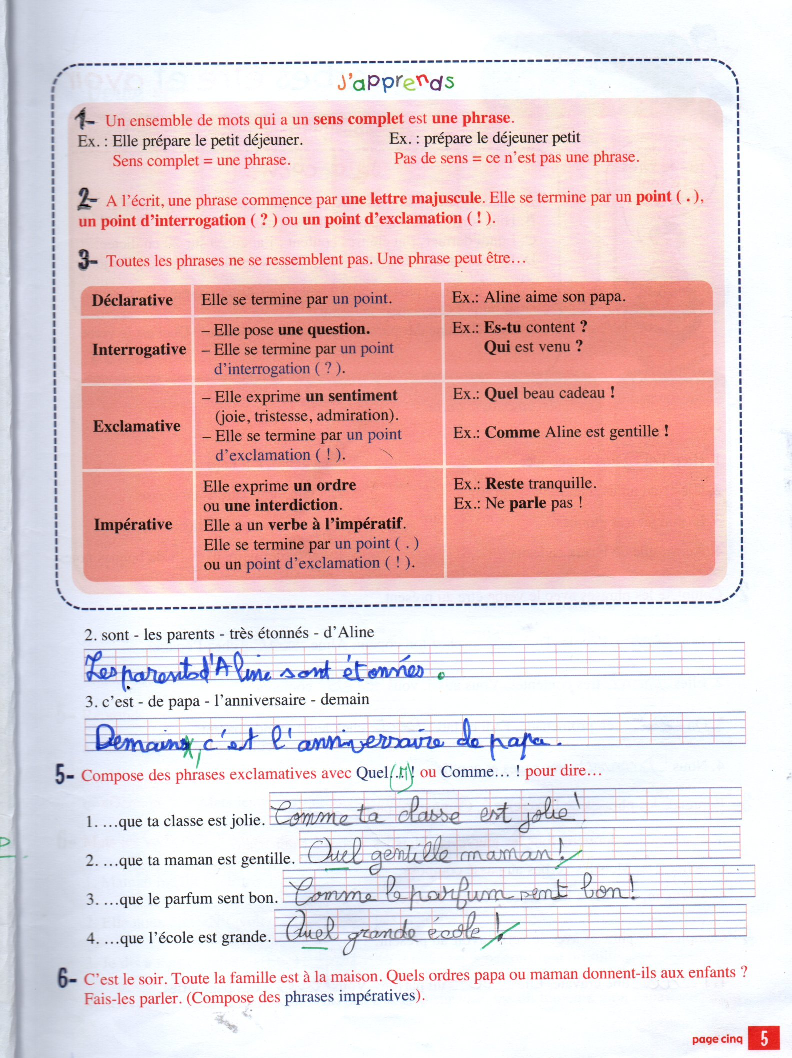 J'apprends
1- Un ensemble de mots qui a un sens complet est une phrase.
Ex. : Elle prépare le petit déjeuner. Ex. : prépare le déjeuner petit
Sens complet = une phrase. Pas de sens = ce n'est pas une phrase.
2- A l'écrit, une phrase commence par une lettre majuscule. Elle se termine par un point ( . ),
un point d'interrogation ( ? ) ou un point d'exclamation ( ! ).
3- Toutes les phrases ne se ressemblent pas. Une phrase peut être…
Déclarative Elle se termine par un point. Ex.: Aline aime son papa.
Interrogative
– Elle pose une question.
– Elle se termine par un point
d'interrogation ( ? ).
Ex.: Es-tu content ?
Qui est venu ?
Exclamative
– Elle exprime un sentiment
(joie, tristesse, admiration).
– Elle se termine par un point
d'exclamation ( ! ).
Ex.: Quel beau cadeau !
Ex.: Comme Aline est gentille !
Impérative
Elle exprime un ordre
ou une interdiction.
Elle a un verbe à l'impératif.
Elle se termine par un point ( . )
ou un point d'exclamation ( ! ).
Ex.: Reste tranquille.
Ex.: Ne parle pas !
2. sont - les parents - très étonnés - d'Aline
Les parents d'Aline sont étonnés .
3. c'est - de papa - l'anniversaire - demain
Demain, c'est l'anniversaire de papa.
5- Compose des phrases exclamatives avec Quel… ! ou Comme… ! pour dire…
1. …que ta classe est jolie. Comme ta classe est jolie !
2. …que ta maman est gentille. Quel gentille maman !
3. …que le parfum sent bon. Comme le parfum sent bon !
4. …que l'école est grande. Quel grande école !
6- C'est le soir. Toute la famille est à la maison. Quels ordres papa ou maman donnent-ils aux enfants ?
Fais-les parler. (Compose des phrases impératives).
page cinq 5